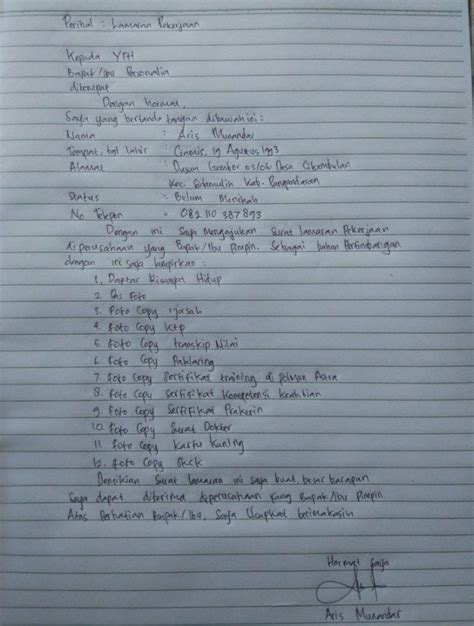 Perihal : Lamaran Pekerjaan
Kepada YTH
Bapak/Ibu Personalia
ditempat
Dengan hormat,
Saya yang bertanda tangan dibawah ini :
Nama : Aris Munandar
Tempat, tgl lahir : Ciamis, 19 Agustus 1993
Alamat : Dusun 03/06 Desa
Kec Kab. Pangandaran
Status : Belum Menikah
No Telepon : 082 110 387 893
Dengan ini Saya Mengajukan Surat lamaran Pekerjaan
diperusahaan yang Bapak/Ibu Pimpin. Sebagai bahan Pertimbangan
dengan ini saya lampirkan :
1. Daftar Riwayat Hidup
2. Pas Foto
3. Foto Copy ijasah
4. Foto Copy Ktp
5. Foto Copy transkip Nilai
6. Foto Copy Paklaring
7. Foto Copy Sertifikat training di Astra
8. Foto Copy Sertifikat Kompetensi keahlian
9. Foto Copy Sertifikat Prakerin
10. Foto Copy Surat Dokter
11. Foto Copy Kartu kuning
12. Foto Copy Skck
Demikian Surat lamaran ini saya buat, besar harapan
Saya dapat diterima diperusahaan yang Bapak/Ibu Pimpin.
Atas Perhatian Bapak/Ibu, Saya Ucapkat berimakasih
Hormat Saya
Aris Munandar